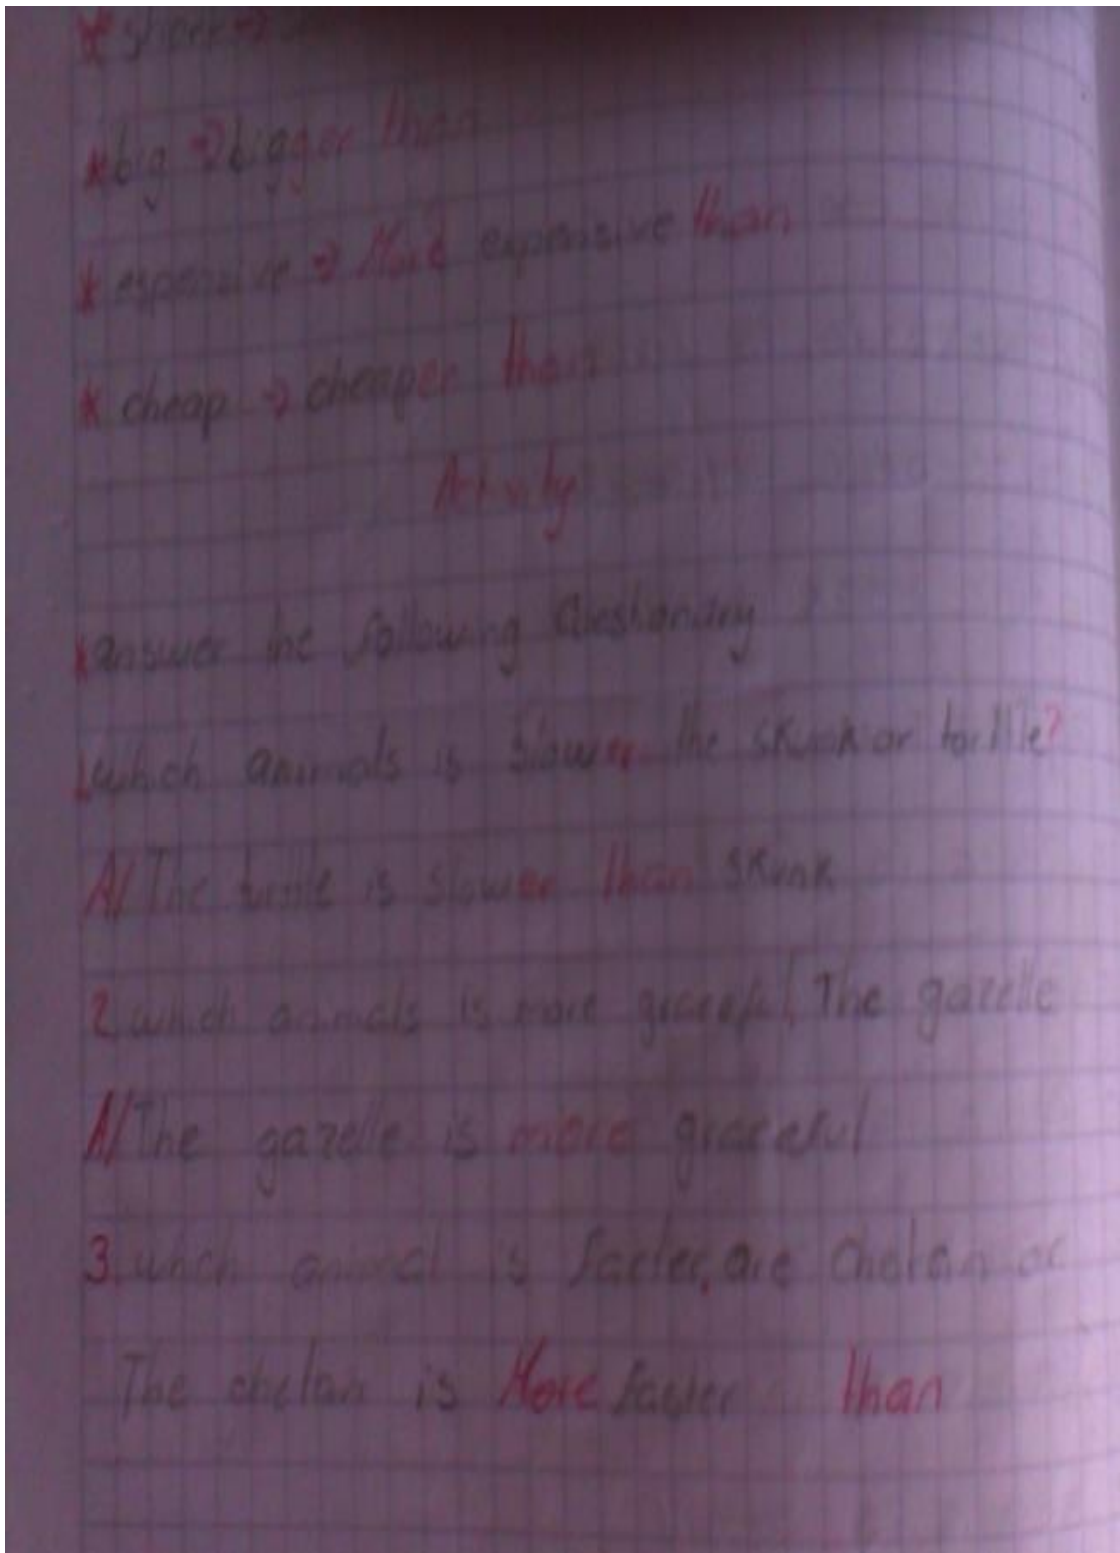 * short →
* big → bigger than
* expensive → More expensive than
* cheap → cheaper than
Activity
* answer the following Questionary
1. which animals is slower the skunk or turtle?
A/ The turtle is slower than skunk
2. which animals is more graceful, The gazelle
A/ The gazelle is more graceful
3. which animal is faster, are chetan or
The chetan is More faster than